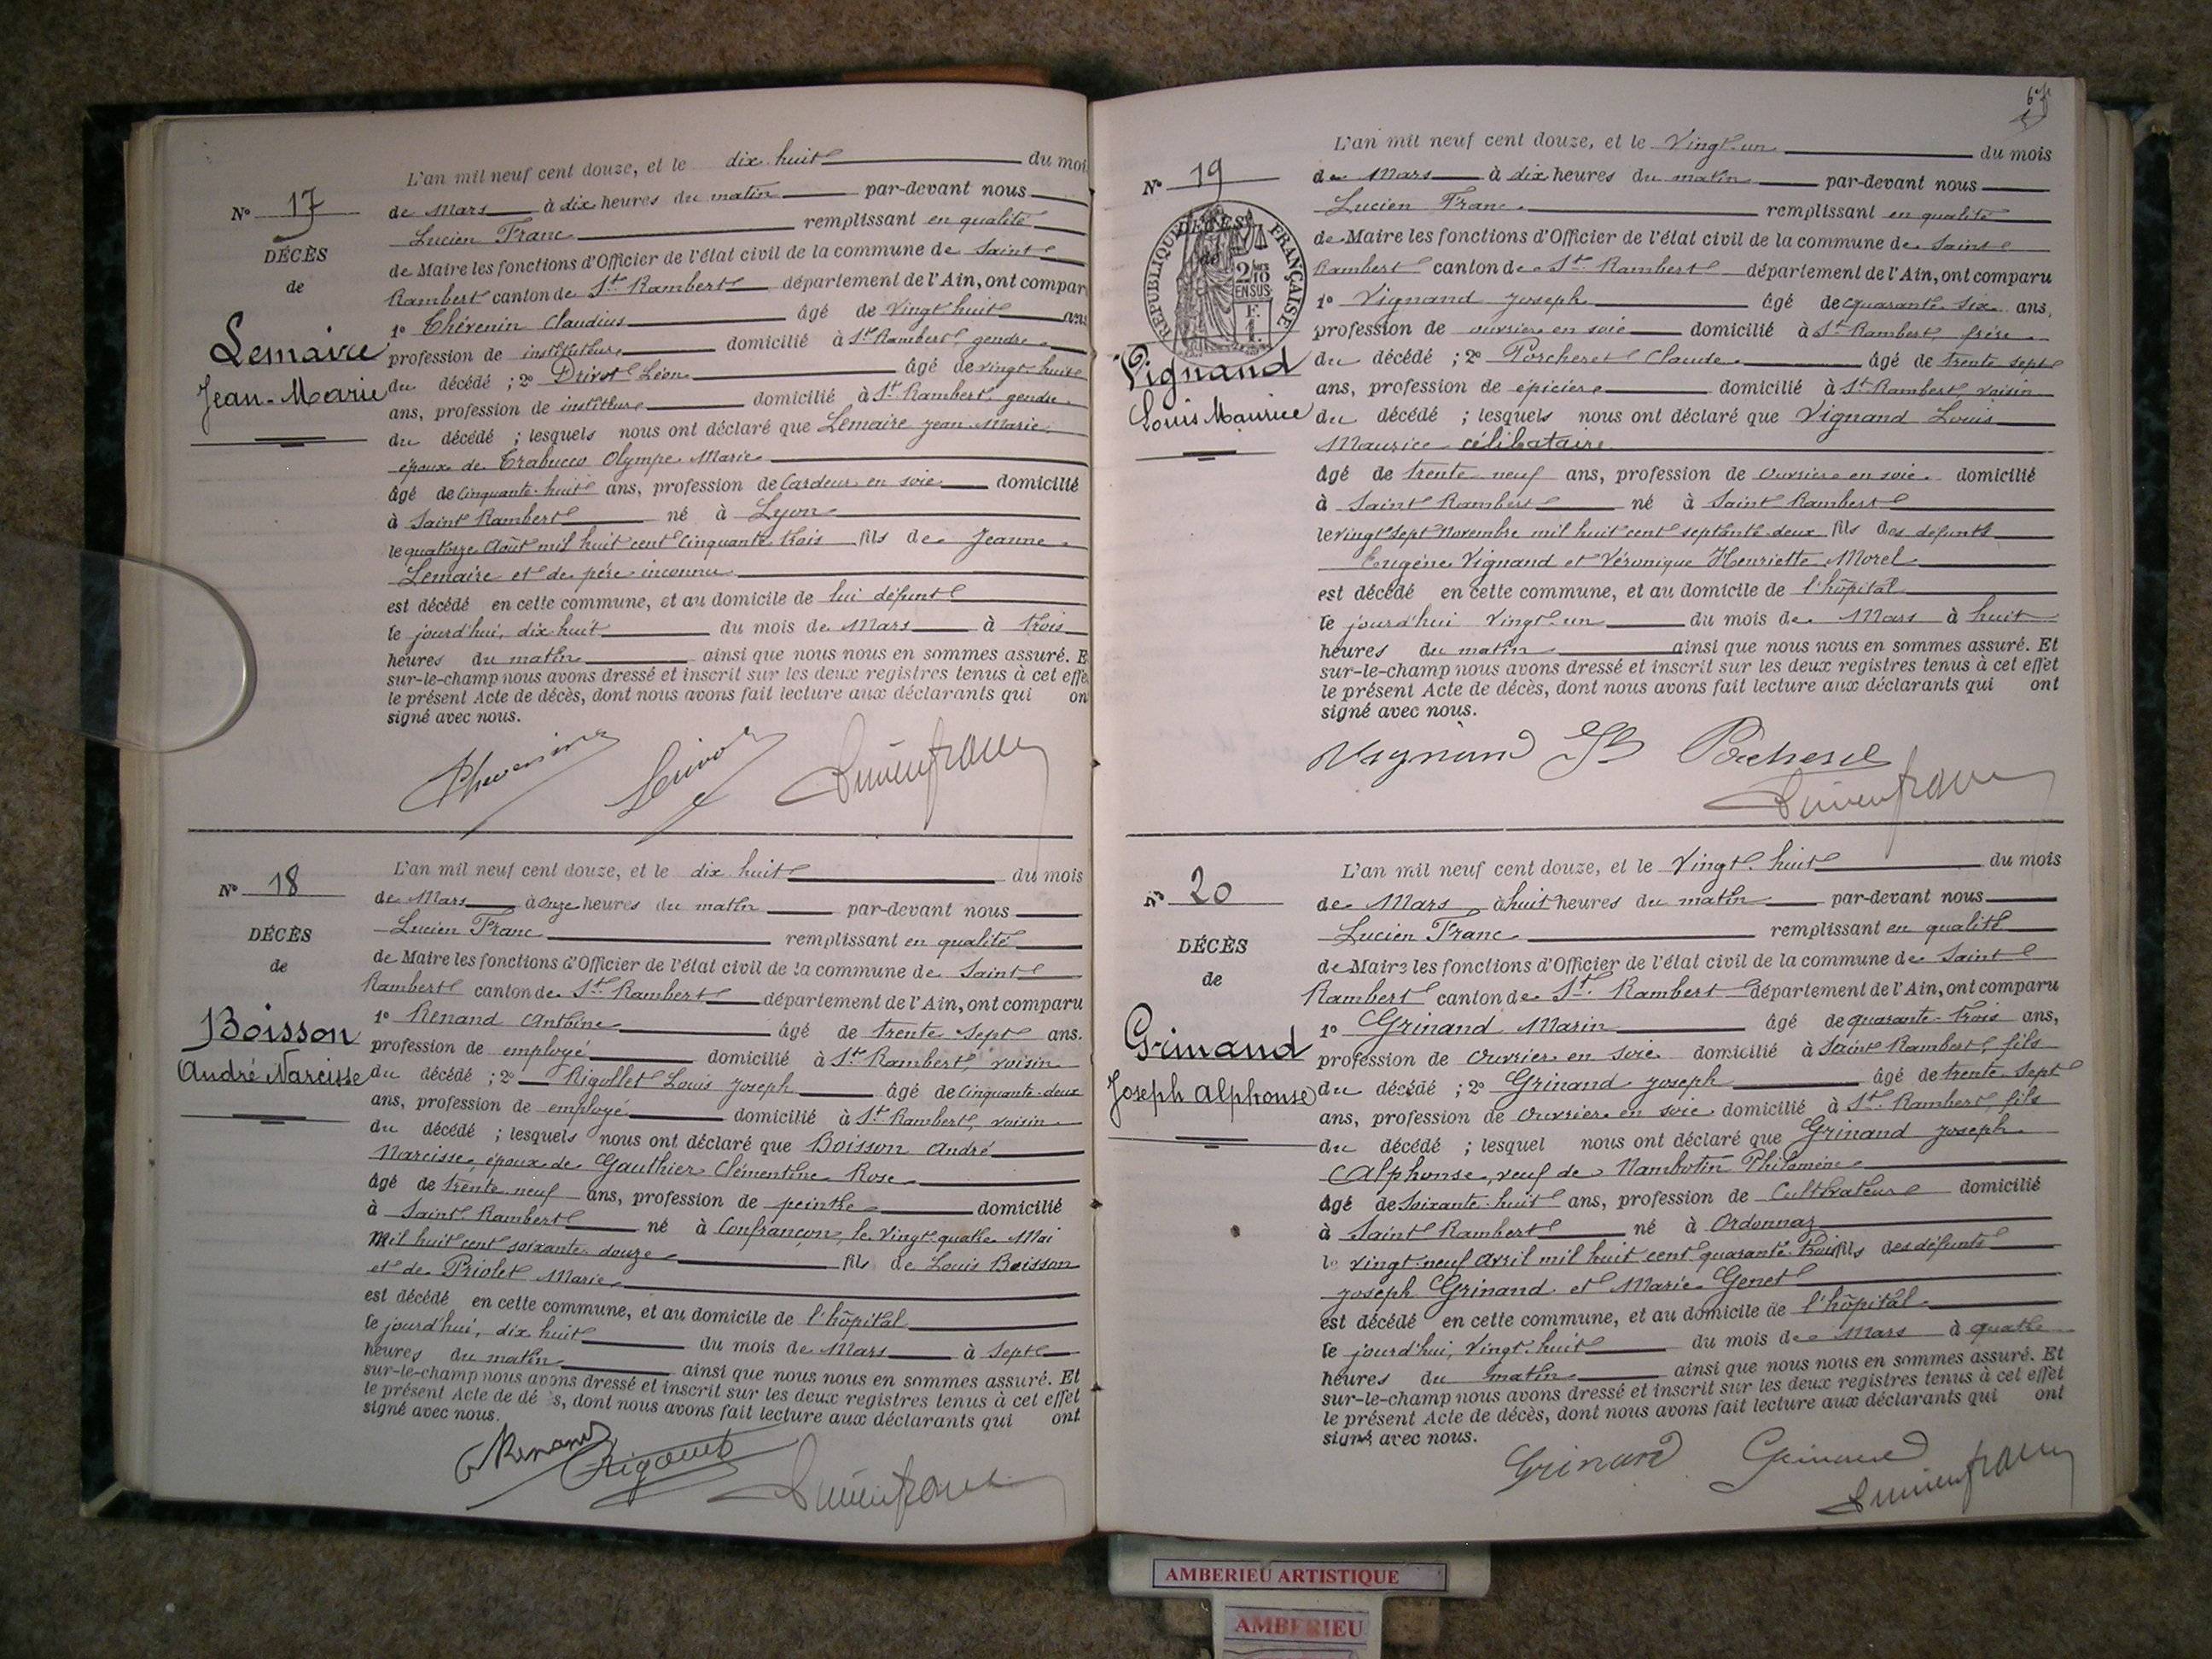 L'an mil neuf cent douze, et le dix huit du moi
N° 17
de Mars à dix heures du matin par-devant nous
Lucien Franc remplissant en qualité
DÉCÈS
de Maire les fonctions d'Officier de l'état civil de la commune de Saint
de
Rambert canton de St Rambert département de l'Ain, ont compar
1° Thévenin Claudius âgé de vingt huit ans
Lemaire
profession de instituteur domicilié à St Rambert, gendre
Jean-Marie
du décédé ; 2° Drivot Léon âgé de vingt-huit
ans, profession de instituteur domicilié à St Rambert, gendre
du décédé ; lesquels nous ont déclaré que Lemaire Jean Marie
époux de Trabucco Olympe Marie
âgé de cinquante-huit ans, profession de Cardeur en soie domicilié
à Saint Rambert né à Lyon
le quatorze Août mil huit cent cinquante trois fils de Jeanne
Lemaire et de père inconnu
est décédé en cette commune, et au domicile de lui défunt
le jourd'hui, dix huit du mois de Mars à trois
heures du matin ainsi que nous nous en sommes assuré. E
sur-le-champ nous avons dressé et inscrit sur les deux registres tenus à cet effe
le présent Acte de décès, dont nous avons fait lecture aux déclarants qui on
signé avec nous.
L'an mil neuf cent douze, et le dix huit du mois
N° 18
de Mars à onze heures du matin par-devant nous
Lucien Franc remplissant en qualité
DÉCÈS
de Maire les fonctions d'Officier de l'état civil de la commune de Saint
de
Rambert canton de St Rambert département de l'Ain, ont comparu
1° Renand Antoine âgé de trente sept ans.
Boisson
profession de employé domicilié à St Rambert, voisin
André Narcisse
du décédé ; 2° Rigollet Louis Joseph âgé de cinquante-deux
ans, profession de employé domicilié à St Rambert, voisin
du décédé ; lesquels nous ont déclaré que Boisson André
Narcisse, époux de Gauthier Clémentine Rose
âgé de trente neuf ans, profession de peintre domicilié
à Saint Rambert né à Confrançon, le vingt quatre Mai
mil huit cent soixante douze fils de Louis Boisson
et de Priolet Marie
est décédé en cette commune, et au domicile de l'hôpital
le jourd'hui, dix huit du mois de Mars à sept
heures du matin ainsi que nous nous en sommes assuré. Et
sur-le-champ nous avons dressé et inscrit sur les deux registres tenus à cet effet
le présent Acte de dé s, dont nous avons fait lecture aux déclarants qui ont
signé avec nous.
Renand Rigollet
L'an mil neuf cent douze, et le vingt-un du mois
N° 19
de Mars à dix heures du matin par-devant nous
Lucien Franc remplissant en qualité
DÉCÈS
de
RÉPUBLIQUE FRANÇAISE
2/10 EN SUS
de Maire les fonctions d'Officier de l'état civil de la commune de Saint
Rambert canton de St Rambert département de l'Ain, ont comparu
1° Vignand Joseph âgé de quarante-six ans,
profession de ouvrier en soie domicilié à St Rambert, frère
Vignand
du décédé ; 2° Porcheret Claude âgé de trente sept
Louis Maurice
ans, profession de épicier domicilié à St Rambert, voisin
du décédé ; lesquels nous ont déclaré que Vignand Louis
Maurice célibataire
âgé de trente neuf ans, profession de Ouvrier en soie domicilié
à Saint Rambert né à Saint Rambert
le vingt sept Novembre mil huit cent septante deux fils des défunts
Eugène Vignand et Véronique Henriette Morel
est décédé en cette commune, et au domicile de l'hôpital
le jourd'hui vingt-un du mois de Mars à huit
heures du matin ainsi que nous nous en sommes assuré. Et
sur-le-champ nous avons dressé et inscrit sur les deux registres tenus à cet effet
le présent Acte de décès, dont nous avons fait lecture aux déclarants qui ont
signé avec nous.
Vignand Porcheret
L'an mil neuf cent douze, et le vingt-huit du mois
N° 20
de Mars à huit heures du matin par-devant nous
Lucien Franc remplissant en qualité
DÉCÈS
de Maire les fonctions d'Officier de l'état civil de la commune de Saint
de
Rambert canton de St. Rambert département de l'Ain, ont comparu
1° Grinand Marin âgé de quarante-trois ans,
Grinand
profession de Ouvrier en soie domicilié à Saint Rambert, fils
Joseph Alphonse
du décédé ; 2° Grinand Joseph âgé de trente-sept
ans, profession de Ouvrier en soie domicilié à St. Rambert, fils
du décédé ; lesquel nous ont déclaré que Grinand Joseph
Alphonse, veuf de Nambotin Philomène
âgé de soixante-huit ans, profession de Cultivateur domicilié
à Saint Rambert né à Ordonnaz
le vingt-neuf Avril mil huit cent quarante-trois fils des défunts
Joseph Grinand et Marie Genet
est décédé en cette commune, et au domicile de l'hôpital
le jourd'hui, vingt-huit du mois de Mars à quatre
heures du matin ainsi que nous nous en sommes assuré. Et
sur-le-champ nous avons dressé et inscrit sur les deux registres tenus à cet effet
le présent Acte de décès, dont nous avons fait lecture aux déclarants qui ont
signé avec nous.
Grinand Grinand
AMBERIEU ARTISTIQUE
AMBERIEU